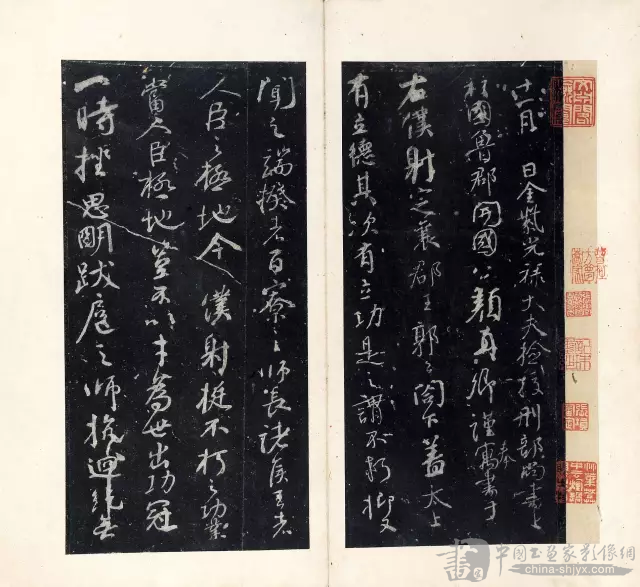 十一月　日金紫光祿大夫檢校刑部尚書上
柱國魯郡開國公顏真卿謹寓書于
奉
右僕射定襄郡王郭公閤下蓋太上
有立德其次有立功是之謂不朽抑又
聞之端揆者百寮之師長諸侯王者
人臣之極地今僕射挺不朽之功業
當人臣極地豈不以才為世出功冠
一時挫思明跋扈之師抗迴紇無
中国书画家影像網
china-shjyx.com